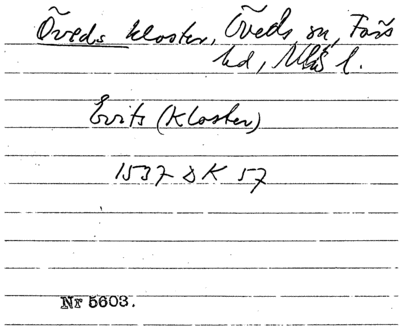 Öveds kloster, Öveds sn, Färs
hd, Mlhs l.
Evits (Kloster)
1537 DK 57
Nr 5603.